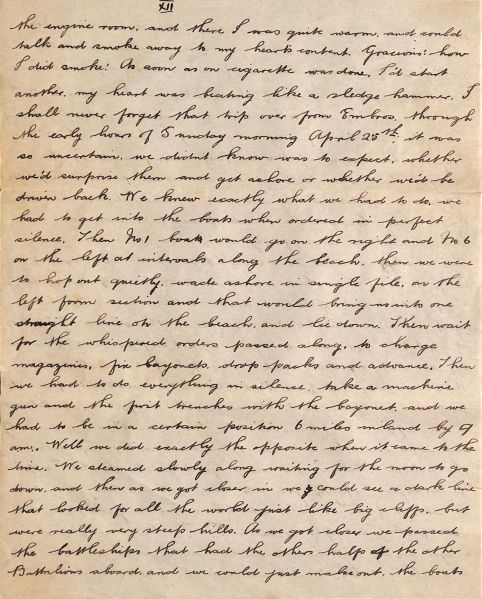 XII
the engine room, and there I was quite warm, and could
talk and smoke away to my hearts content. Gracious! how
I did smoke! As soon as on cigarette was done, I'd start
another, my heart was beating like a sledge hammer. I
shall never forget that trip over from Embros, through
the early hours of Sunday morning April 25th, it was
so uncertain, we didnt know was to expect, whether
we'd surprise them and get ashore or whether we'd be
driven back. We knew exactly what we had to do, we
had to get into the boats when ordered in perfect
silence. Then No 1 boat would go on the right and No 6
on the left at intervals along the beach, then we were
to hop out quietly, wade ashore in single file, on the
left form section and that would bring us into one
straight line on the beach, and lie down. Then wait
for the whispered orders passed along, to charge
magazines, fix bayonets, drop packs and advance. Then
we had to do everything in silence, take a machine
gun and the first trenches with the bayonet, and we
had to be in a certain position 6 miles inland by 9
am. Well we did exactly the opposite when it came to the
time. We steamed slowly along waiting for the moon to go
down, and then as we got closer in we could see a dark line
that looked for all the world just like big cliffs, but
were really very steep hills. As we got closer we passed
the battleships that had the others halfs of the other
Battalions aboard, and we could just make out, the boats